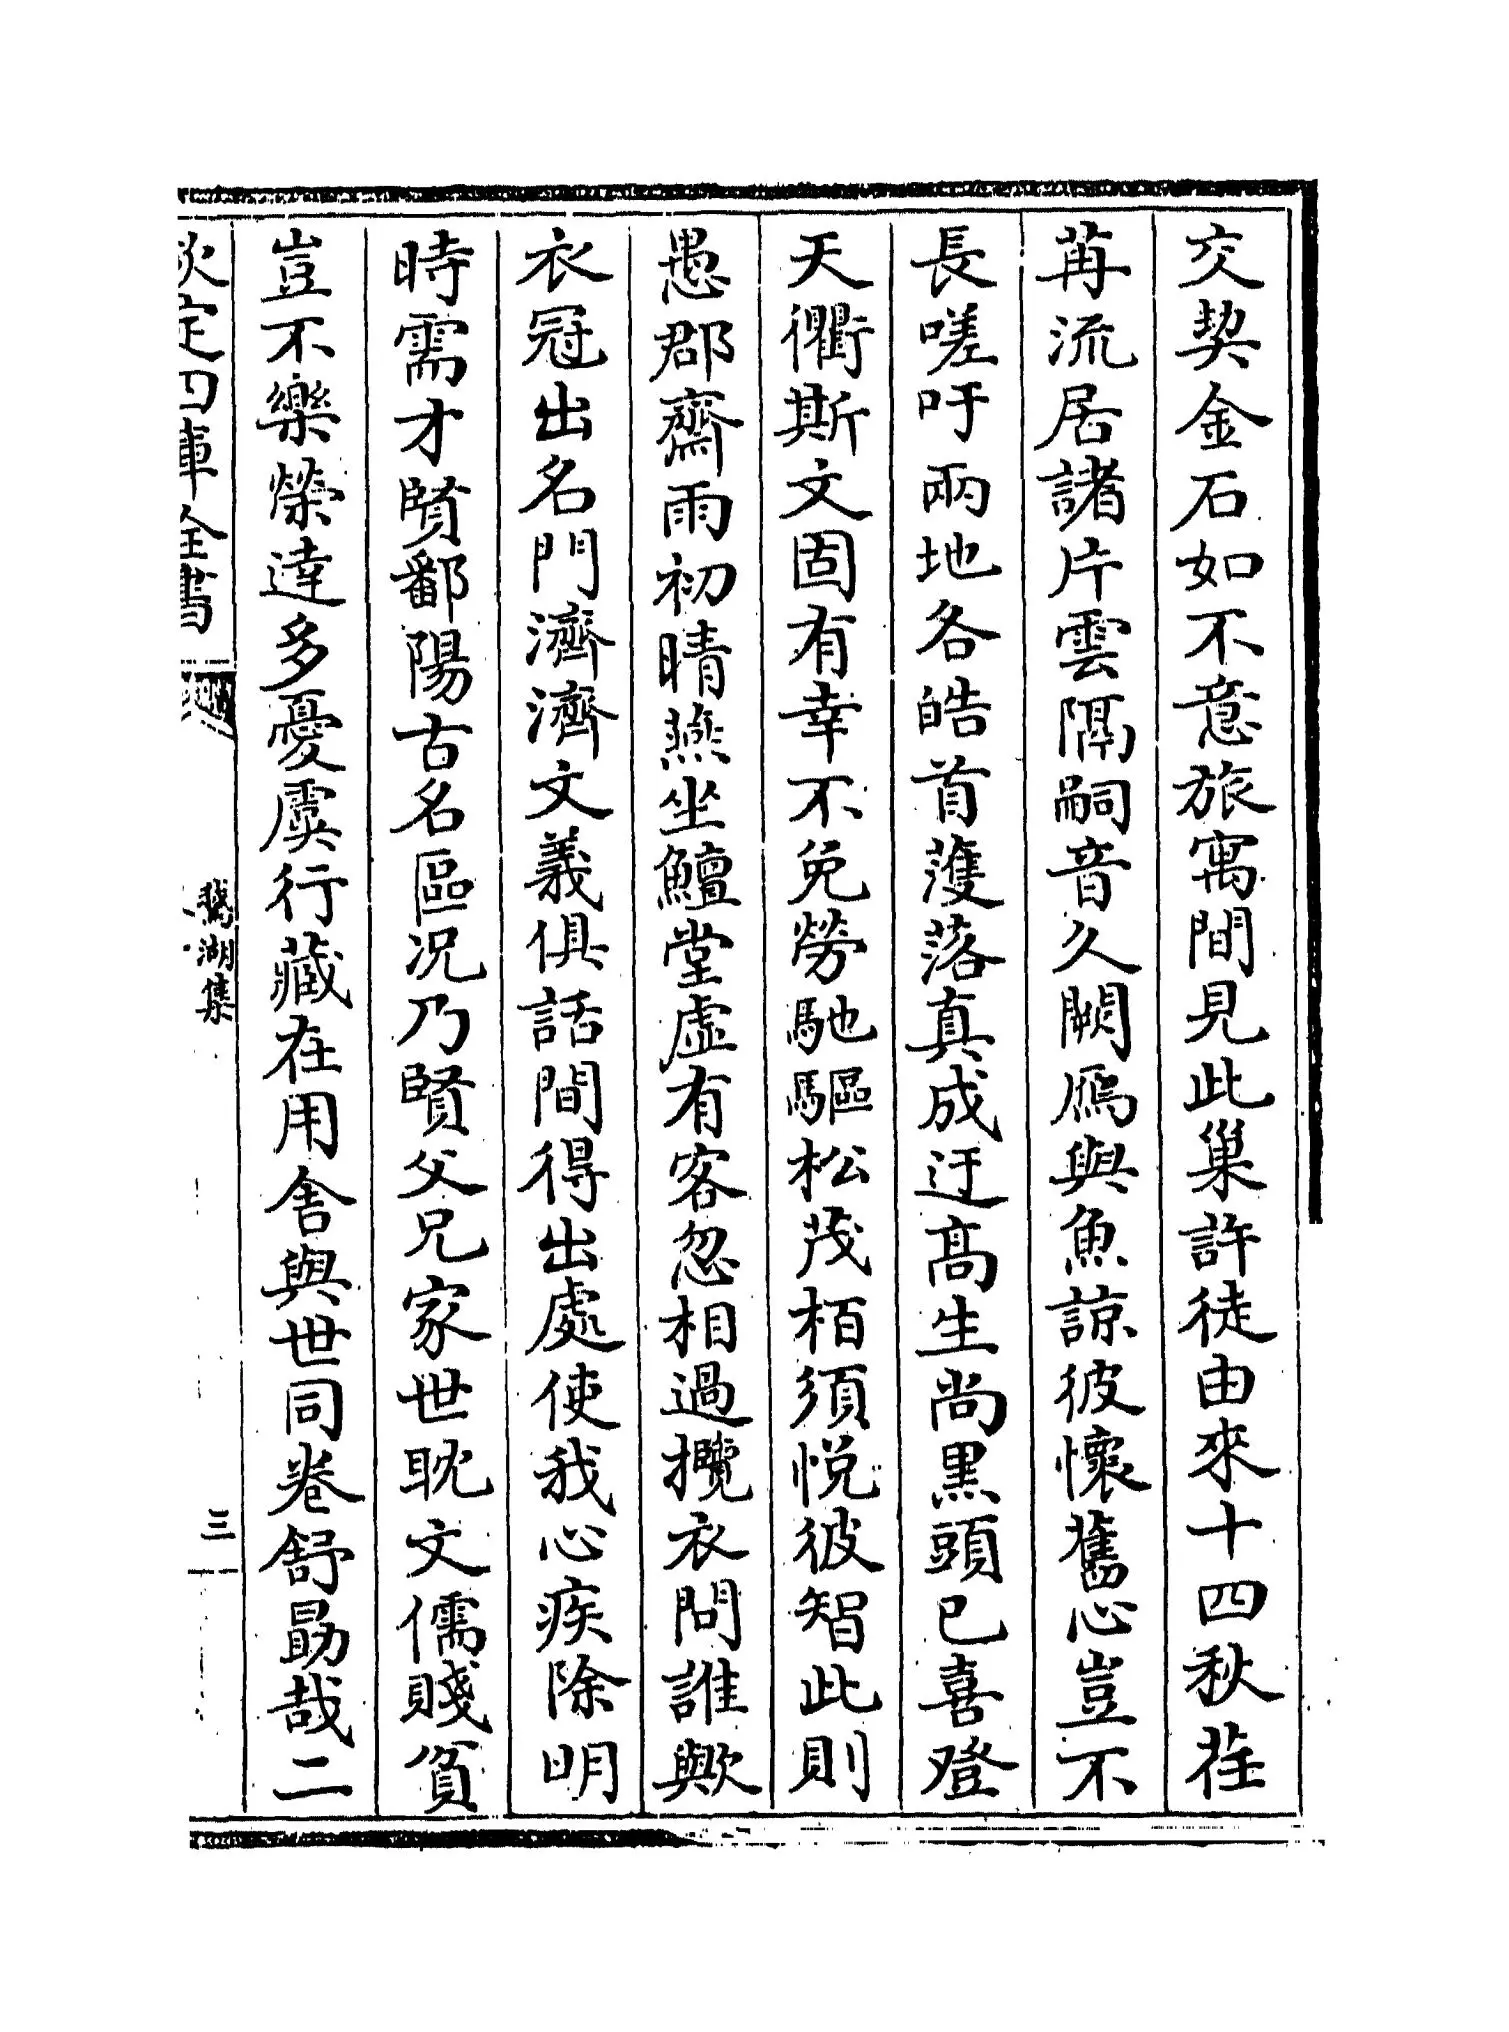 交契金石如不意旅寓間見此巢許徒由來十四秋荏
苒流居諸片雲隔嗣音久闕鴈與魚諒彼懷舊心豈不
長嗟吁兩地各皓首蒦落真成迂高生尚黒頭已喜登
天衢斯文固有幸不免勞馳驅松茂栢須悦彼智此則
愚郡齋雨初晴燕坐鱣堂虚有客忽相過攬衣問誰歟
衣冠出名門濟濟文義俱話間得出處使我心疾除明
時需才賢鄱陽古名區况乃賢父兄家世耽文儒賤貧
豈不樂榮達多憂虞行藏在用舍與世同卷舒勗哉二
欽定四庫全書
鵞湖集
三